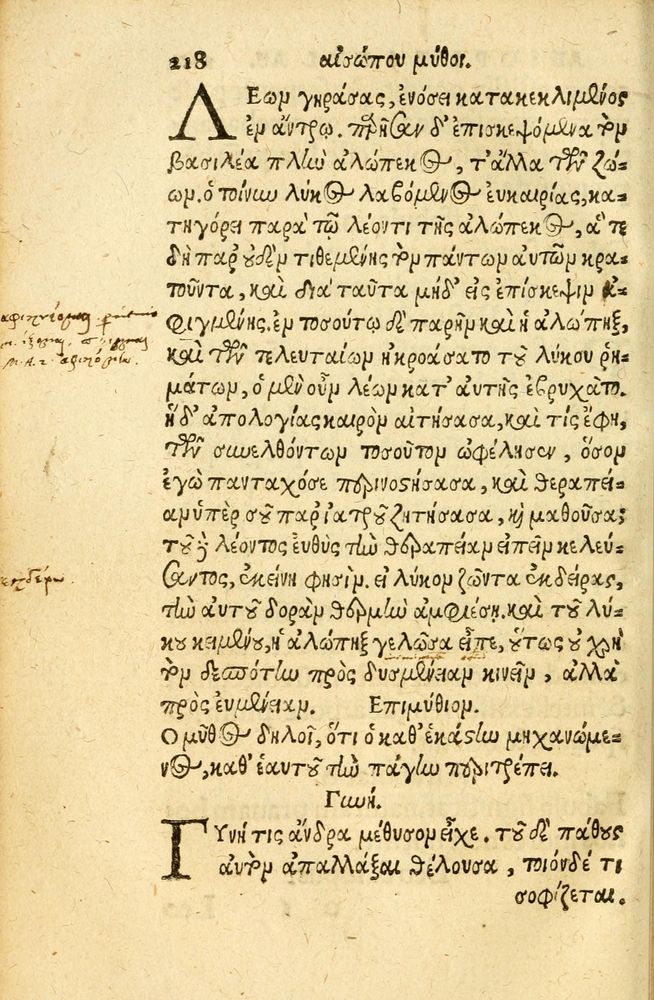 218 αἰσώπου μῦθοι.
Λέων γηράσας, ἐνόσει κατακεκλιμένος
ἐν ἄντρῳ. παρῆσαν δ' ἐπισκεψόμενα τὸν
βασιλέα πλὴν ἀλώπεκος, τ' ἄλλα τῶν ζώ-
ων. ὁ τοίνυν λύκος λαβόμενος εὐκαιρίας, κα-
τηγόρει παρὰ τῷ λέοντι τῆς ἀλώπεκος, ἅτε
δὴ παρ' οὐδὲν τιθεμένης τὸν πάντων αὐτῶν κρα-
τοῦντα, καὶ διὰ ταῦτα μηδ' εἰς ἐπίσκεψιν ἀ-
φιγμένης. ἐν τοσούτῳ δὲ παρῆν καὶ ἡ ἀλώπηξ,
καὶ τῶν τελευταίων ἠκροάσατο τοῦ λύκου ῥη-
μάτων, ὁ μὲν οὖν λέων κατ' αὐτῆς ἐβρυχᾶτο.
ἡ δ' ἀπολογίας καιρὸν αἰτήσασα, καὶ τίς ἔφη,
τῶν συνελθόντων τοσοῦτον ὠφέλησεν, ὅσον
ἐγὼ πανταχόσε περινοστήσασα, καὶ θεραπεί-
αν ὑπὲρ σοῦ παρ' ἰατροῦ ζητήσασα, καὶ μαθοῦσα;
τοῦ δὲ λέοντος εὐθὺς τὴν θεραπείαν εἰπεῖν κελεύ-
σαντος, ἐκείνη φησίν. εἰ λύκον ζῶντα ἐκδείρας,
τὴν αὐτοῦ δορὰν θερμὴν ἀμφιέσῃ. καὶ τοῦ λύ-
κου κειμένου, ἡ ἀλώπηξ γελῶσα εἶπε, οὕτως οὐ χρὴ
τὸν δεσπότην πρὸς δυσμένειαν κινεῖν, ἀλλὰ
πρὸς εὐμένειαν. Ἐπιμύθιον.
Ὁ μῦθος δηλοῖ, ὅτι ὁ καθ' ἑκάστην μηχανώμε-
νος, καθ' ἑαυτοῦ τὴν πάγην περιτρέπει.
Γυνή.
Γυνή τις ἄνδρα μέθυσον εἶχε. τοῦ δὲ πάθους
αὐτὸν ἀπαλλάξαι θέλουσα, τοιόνδε τι
σοφίζεται.
ἐκδέρω.